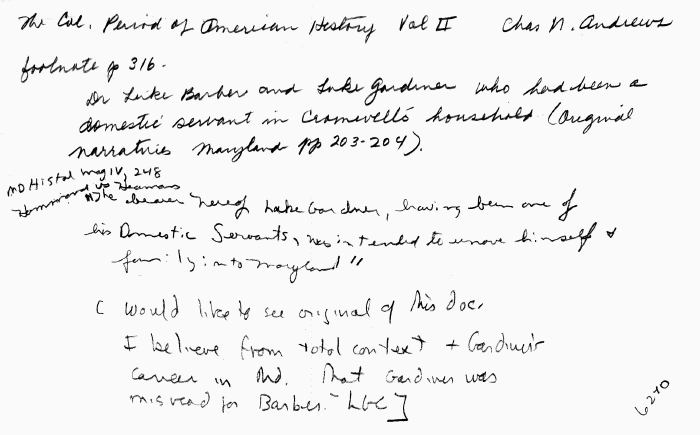 The Col. Period of American History Vol II Chas M. Andrews
footnote p 316.
Dr Luke Barber and Luke Gardiner who had been a
domestic servant in Cromwell's household (Original
narratives Maryland pp 203-204).
MD Hist Mag IV, 248
Hammond vs Heamans
"The bearer hereof Luke Gardner, having been one of
his Domestic Servants, has intended to remove himself &
family into Maryland"
[ would like to see original of this doc.
I believe from total context + Gardiner's
career in Md. That Gardiner was
misread for Barber. - LGC ]
6240